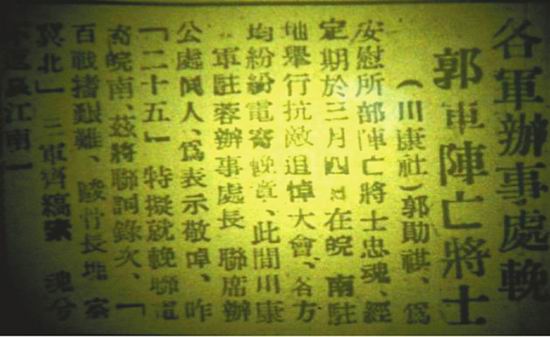 各軍辦事處輓
郭軍陣亡將士
（川康社）郭勛祺、爲
安慰所部陣亡將士忠魂、經
定期於三月四日在皖南駐
地舉行抗敵追悼大會、各方
均紛紛電寄輓章、此間川康
軍駐蓉辦事處長聯席辦
公處同人、爲表示敬悼、昨
「二十五」特擬就輓聯
寄皖南、茲將聯詞錄次、「
百戰 艱難、 骨長埋
冀北」三軍齊縞素 魂兮
江南」